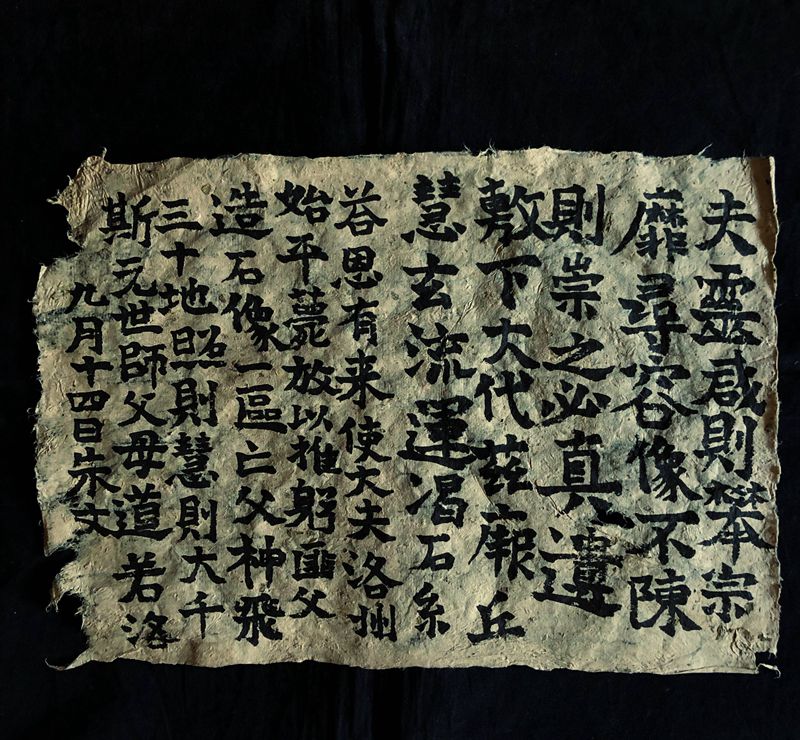 夫靈則攀宗
靡尋容像不陳
則崇之必真遺
敷下大代茲丘
慧玄流運渴石系
荅恩有来使大夫洛州
始平薨放以推躬匪父
造石像一區亡父神飛
三十地照則慧則大千
斯元世師父母道若洛
九月十四日朱文